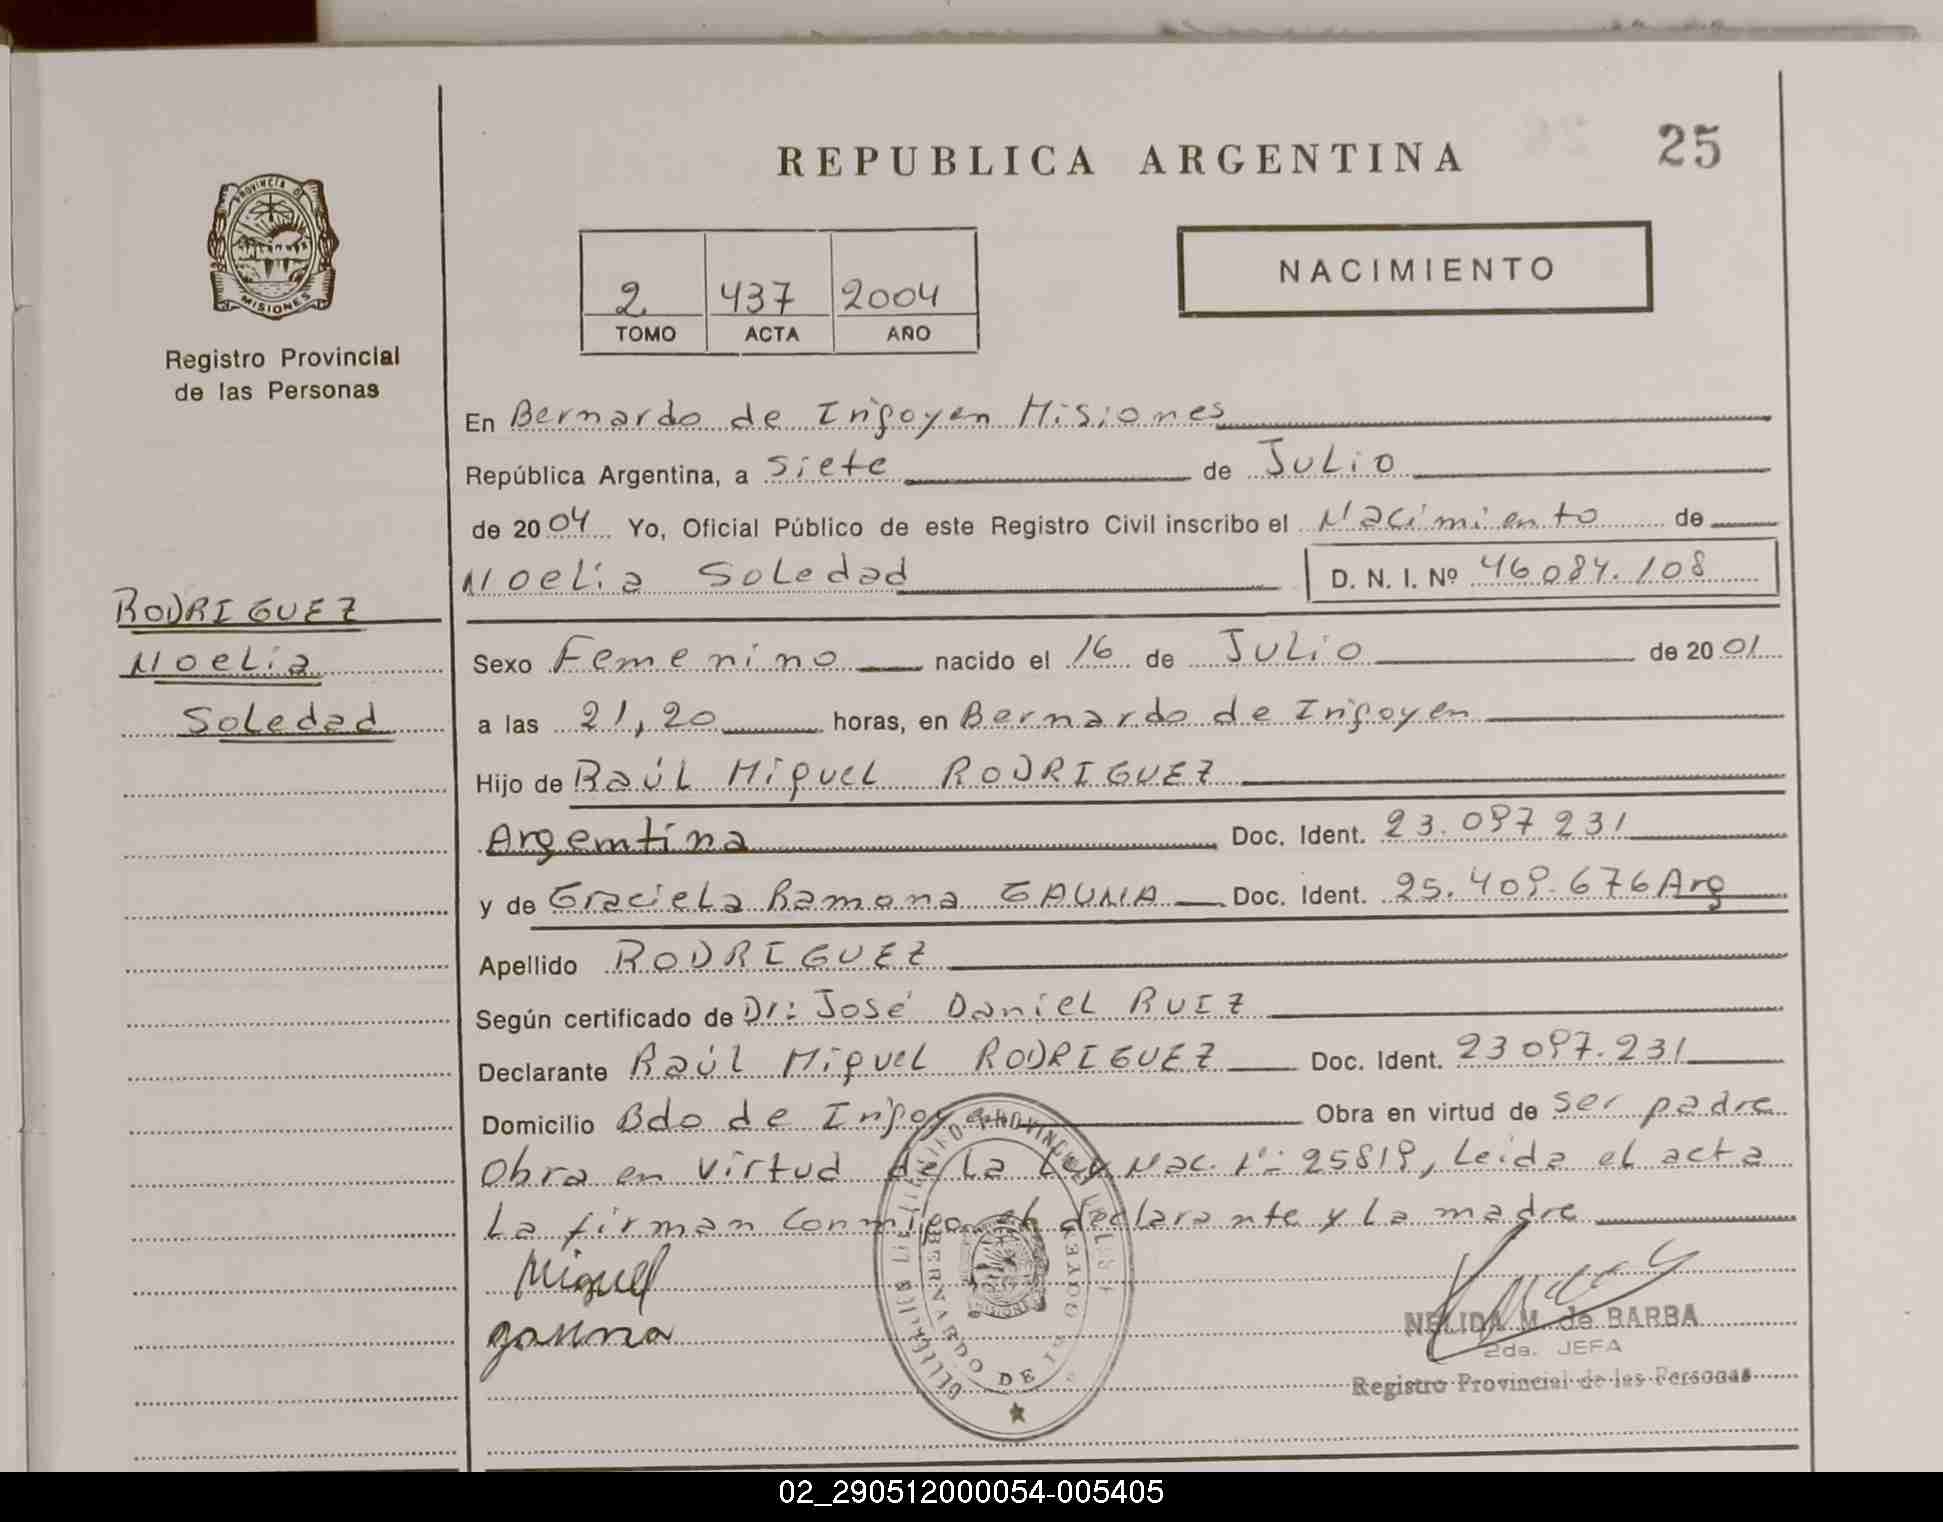 REPUBLICA ARGENTINA
25
PROVINCIA DE
MISIONES
Registro Provincial
de las Personas
2 437 2004
TOMO ACTA AÑO
NACIMIENTO
En Bernardo de Irigoyen Misiones
República Argentina, a siete de Julio
de 2004 Yo, Oficial Público de este Registro Civil inscribo el Nacimiento de
Noelia Soledad D. N. I. Nº 46084.108
RODRIGUEZ
Noelia
Soledad
Sexo Femenino nacido el 16 de Julio de 2001
a las 21,20 horas, en Bernardo de Irigoyen
Hijo de Raúl Miguel RODRIGUEZ
Argentina Doc. Ident. 23.097 231
y de Graciela Ramona GAUNA Doc. Ident. 25.409.676 Arg
Apellido RODRIGUEZ
Según certificado de Dr: José Daniel RUIZ
Declarante Raúl Miguel RODRIGUEZ Doc. Ident. 23 097.231
Domicilio Bdo de Irigoyen Obra en virtud de ser padre
Obra en virtud de La Ley Nac. Nº: 25819, Leida el acta
La firman conmigo el declarante y La madre
Miguel
gauna
BERNARDO DE IRIGOYEN
NELIDA M. de BARBA
2da. JEFA
Registro Provincial de las Personas
02_290512000054-005405